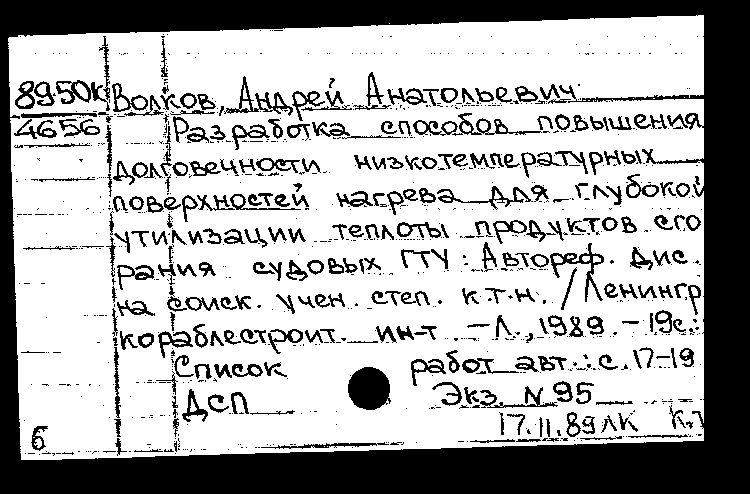 8950к Волков, Андрей Анатольевич
4656 Разработка способов повышения
долговечности низкотемпературных
поверхностей нагрева для глубокой
утилизации теплоты продуктов сго
рания судовых ГТУ: Автореф. Дис.
на соиск. учен. степ. к.т.н. /Ленингр
кораблестроит. ин-т. – Л., 1989. – 19с.:
Список работ авт.: с. 17-19
ДСП Экз. N 95
6 17.11.89 ЛК К.Т